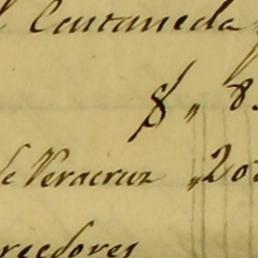 Castaneda
$ „ 8
de Veracruz „ 20
reedores